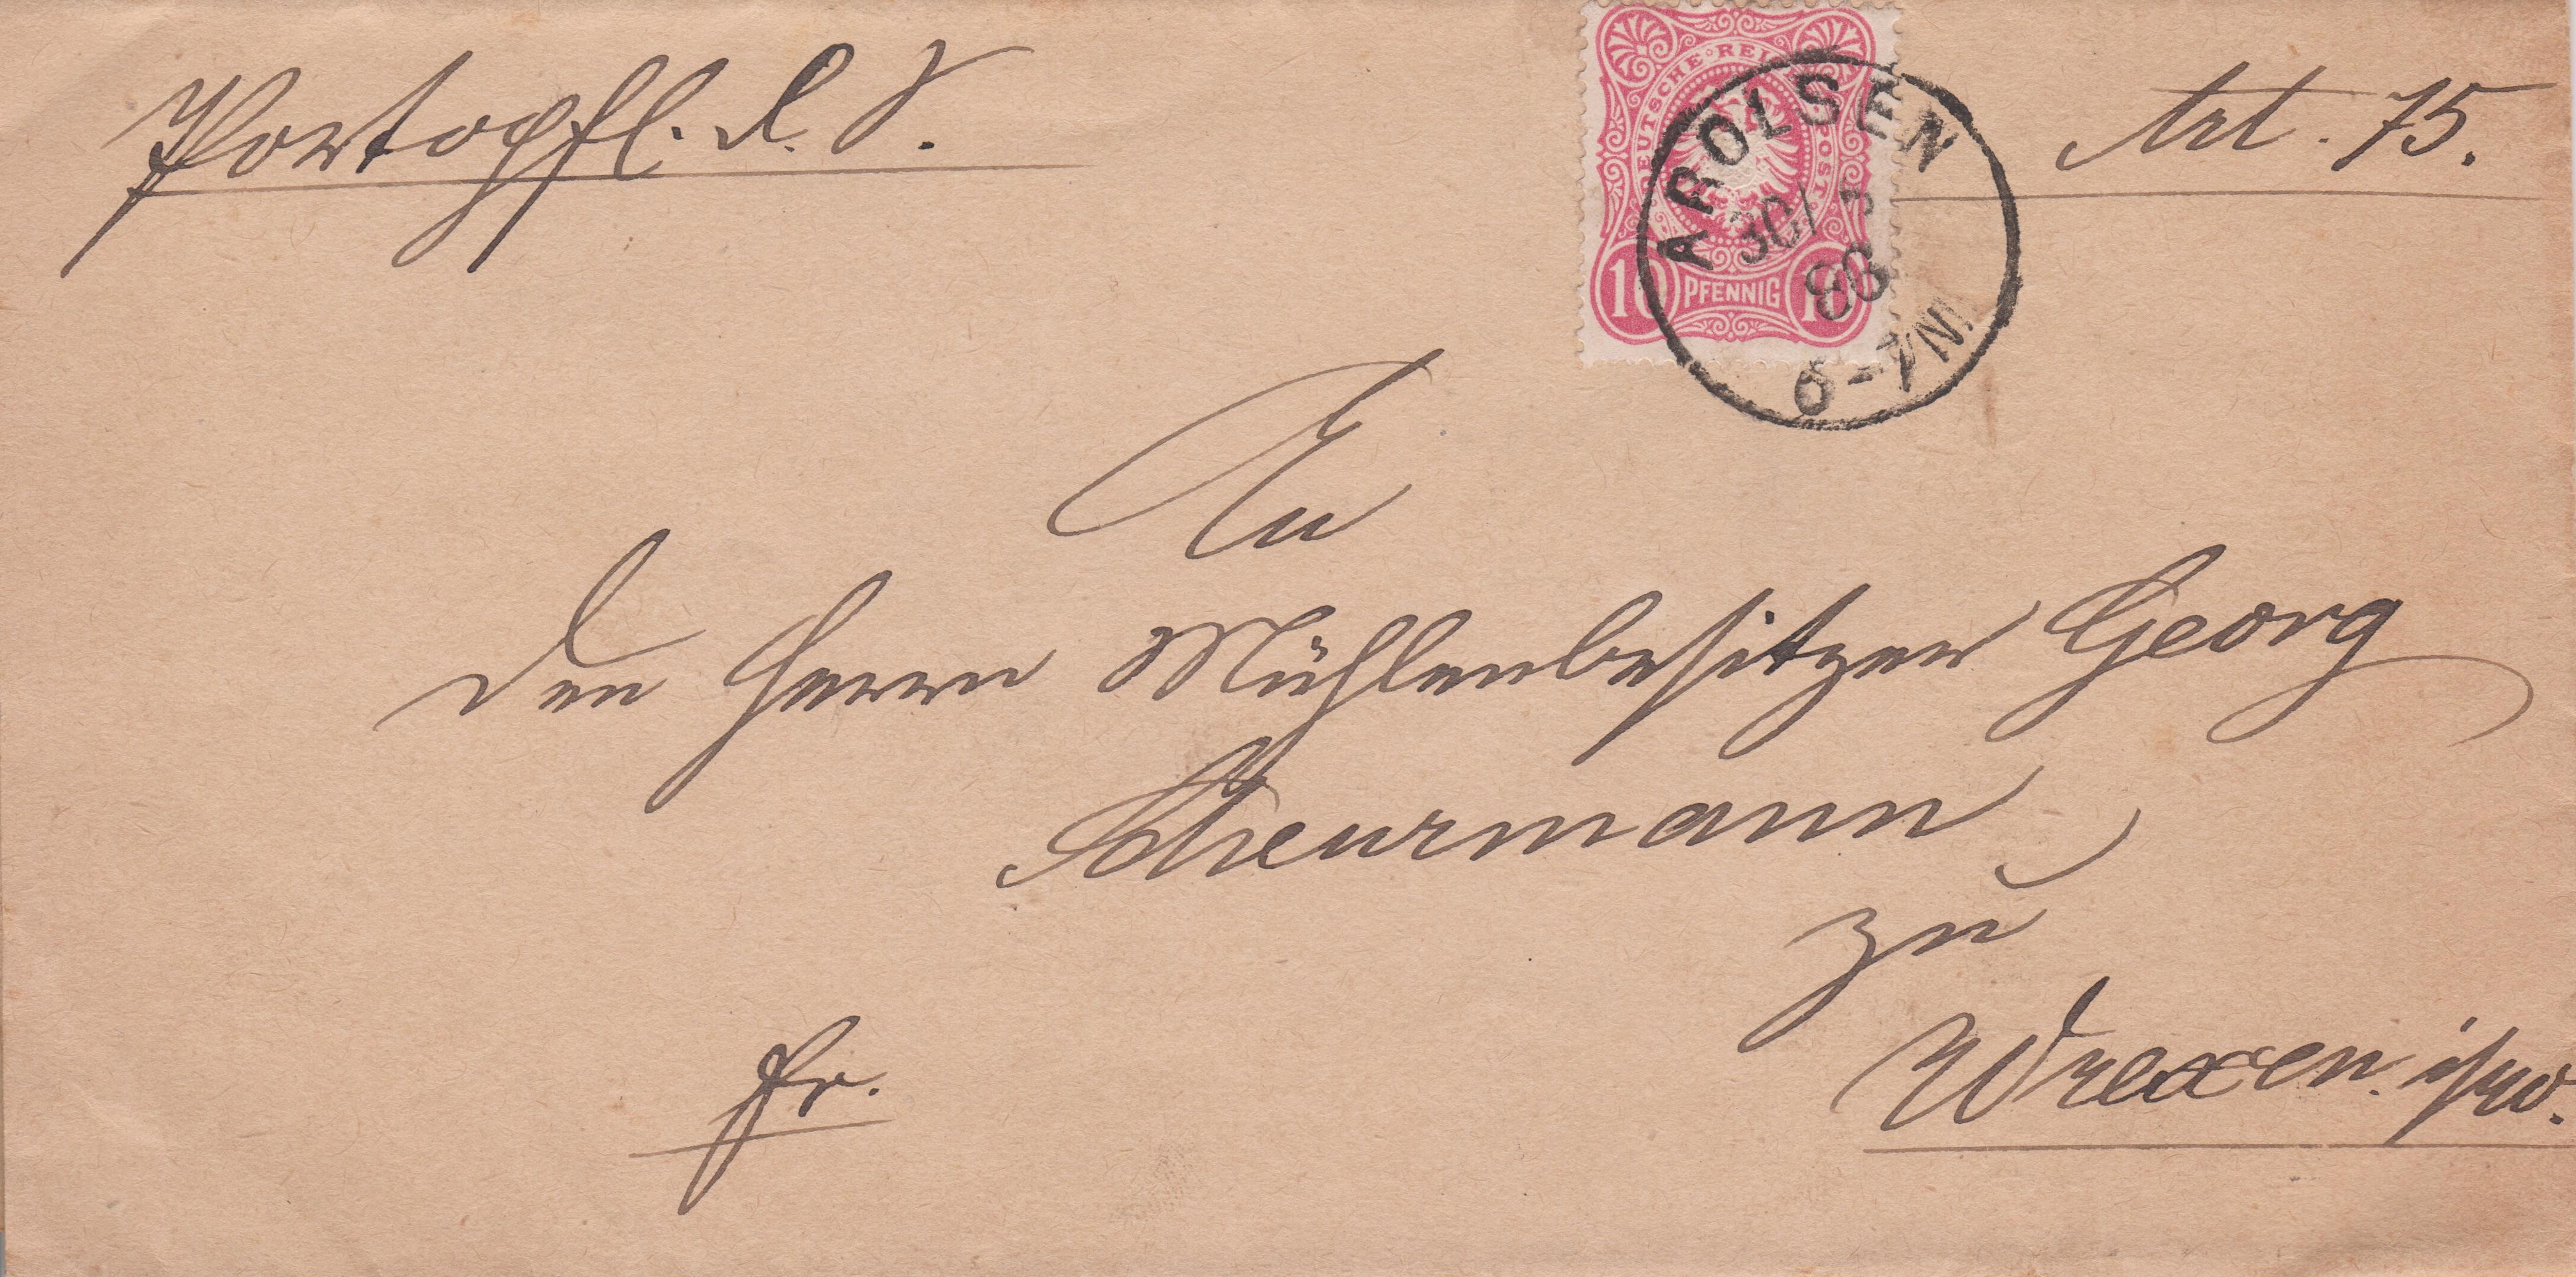 Portopfl. D. S.
Art. 75.
DEUTSCHE REICHS-POST
10 PFENNIG 10
AROLSEN
30/
88
6-7N.
An
den Herrn Mühlenbesitzer Georg
Scheurmann
zu
Wrexen.
fr.